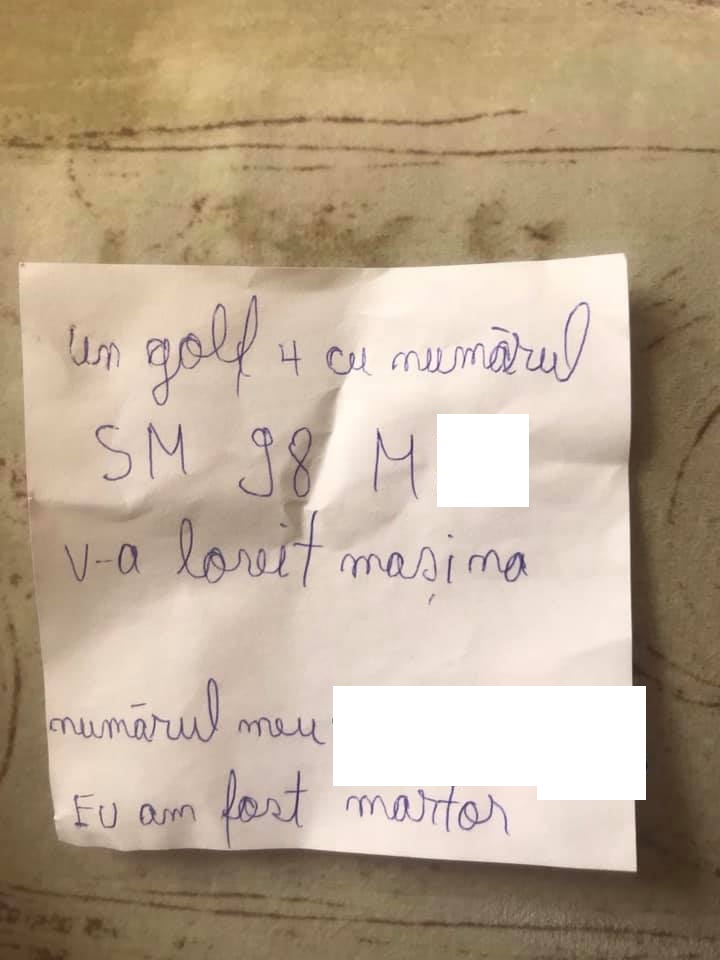 un golf 4 cu numărul
SM 98 M
v-a lovit mașina
numărul meu
Eu am fost martor